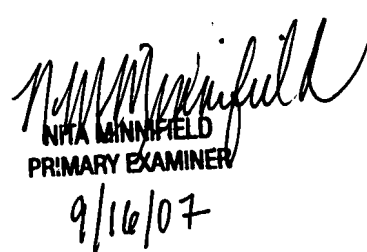 N. M. Minnifield
NITA MINNIFIELD
PRIMARY EXAMINER
9/16/07